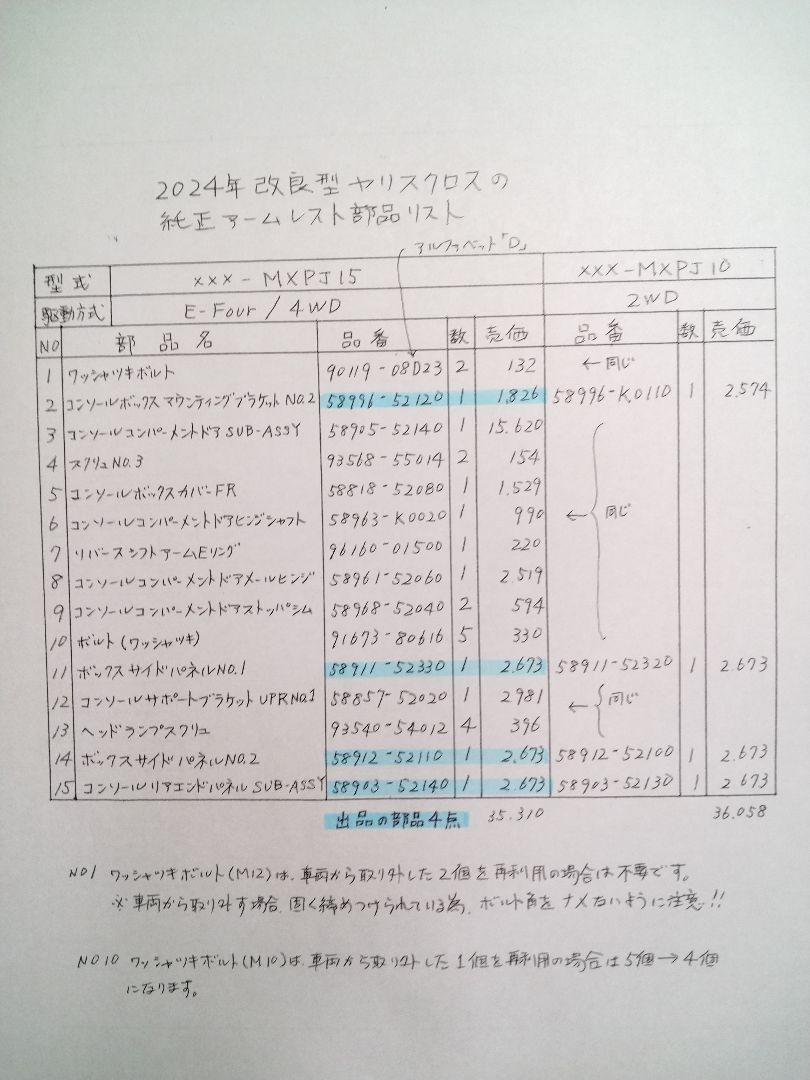 2024年改良型ヤリスクロスの
純正アームレスト部品リスト
アルファベット「D」
型式 xxx-MXPJ15 xxx-MXPJ10
駆動方式 E-Four/4WD 2WD
NO 部品名 品番 数 売価 品番 数 売価
1 ワッシャツキボルト 90119-08D23 2 132 ←同じ
2 コンソールボックスマウンティングブラケットNO.2 58996-52120 1 1,826 58996-K0110 1 2.574
3 コンソールコンパーメントドアSUB-ASSY 58905-52140 1 15.620
4 スクリュNO.3 93568-55014 2 154
5 コンソールボックスカバーFR 58818-52080 1 1.529
6 コンソールコンパーメントドアヒンジシャフト 58963-K0020 1 990 ←同じ
7 リバースシフトアームEリング 96160-01500 1 220
8 コンソールコンパーメントドアメールヒンジ 58961-52060 1 2.519
9 コンソールコンパーメントドアストッパシム 58968-52040 2 594
10 ボルト(ワッシャツキ) 91673-80616 5 330
11 ボックスサイドパネルNO.1 58911-52330 1 2.673 58911-52320 1 2.673
12 コンソールサポートブラケットUPRNO.1 58857-52020 1 2981 ←同じ
13 ヘッドランプスクリュ 93540-54012 4 396
14 ボックスサイドパネルNO.2 58912-52110 1 2.673 58912-52100 1 2.673
15 コンソールリアエンドパネルSUB-ASSY 58903-52140 1 2.673 58903-52130 1 2673
出品の部品4点 35.310 36.058
NO1 ワッシャツキボルト(M12)は、車両から取り外した2個を再利用の場合は不要です。
※車両から取り外す場合、固く締めつけられている為、ボルト角をナメないように注意!!
NO10 ワッシャツキボルト(M10)は、車両から取り外した1個を再利用の場合は5個→4個
になります。